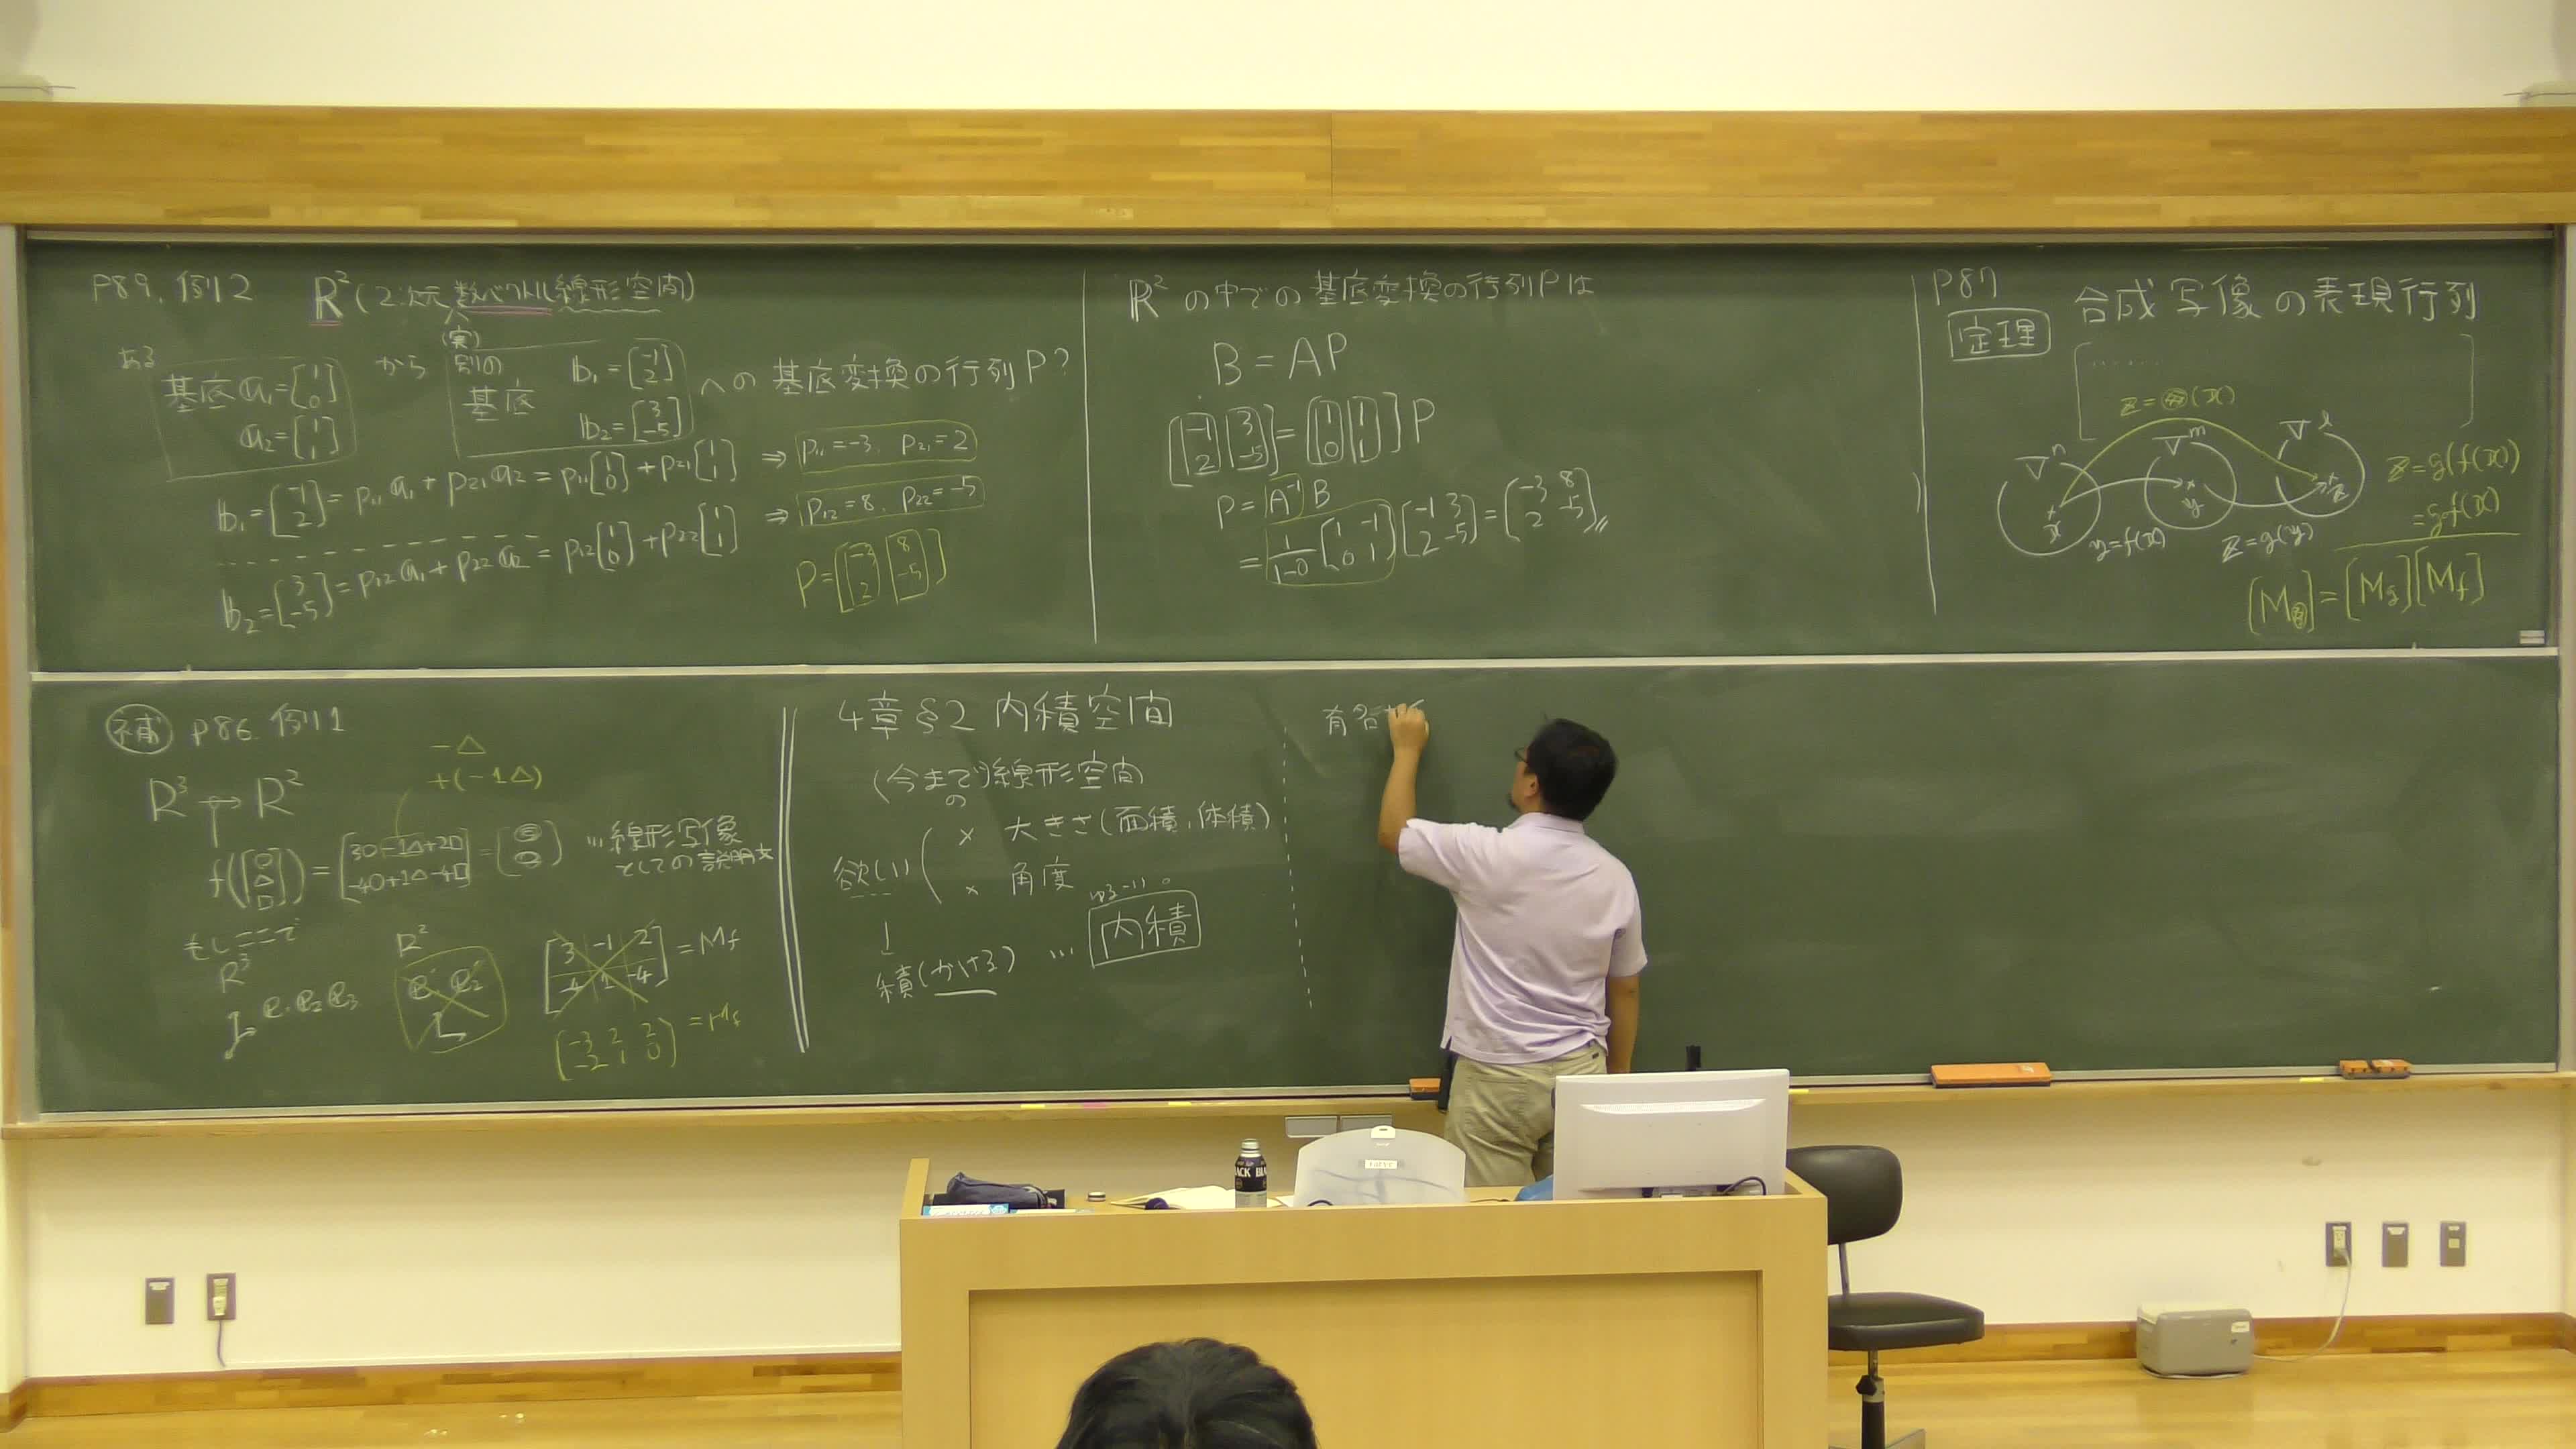 P89. 例2 R²(2次元数ベクトル線形空間)
(実)
ある
基底 a₁=[1 0]
a₂=[1 1]
から
別の
基底
b₁=[-1 2]
b₂=[3 -5]
への基底変換の行列P?
b₁=[-1 2]=p₁₁a₁+p₂₁a₂=p₁₁[1 0]+p₂₁[1 1] ⇒ p₁₁=-3, p₂₁=2
b₂=[3 -5]=p₁₂a₁+p₂₂a₂=p₁₂[1 0]+p₂₂[1 1] ⇒ p₁₂=8, p₂₂=-5
P=[-3 8
2 -5]
R²の中での基底変換の行列Pは
B=AP
[-1 3
2 -5]=[1 1
0 1]P
P=A⁻¹B
=1/(1-0)[1 -1
0 1][-1 3
2 -5]=[-3 8
2 -5]
P87
定理 合成写像の表現行列
Vⁿ Vᵐ Vˡ
x y z
y=f(x) z=g(y)
z=g(f(x))
=g∘f(x)
補 P86. 例1
-△
+(-1△)
R³→R²
f([○ △ □])=[3○-1△+2□
-4○+1△-4□]
…線形写像
としての説明文
もしここで
R³
e₁ e₂ e₃
R²
e₁' e₂'
[3 -1 2
-4 1 -4]=Mf
[-3 2 2
-2 1 0]=Mf
4章§2 内積空間
(今までの)線形空間
欲しい
× 大きさ(面積、体積)
× 角度
↓
積(かける) … 内積
有名